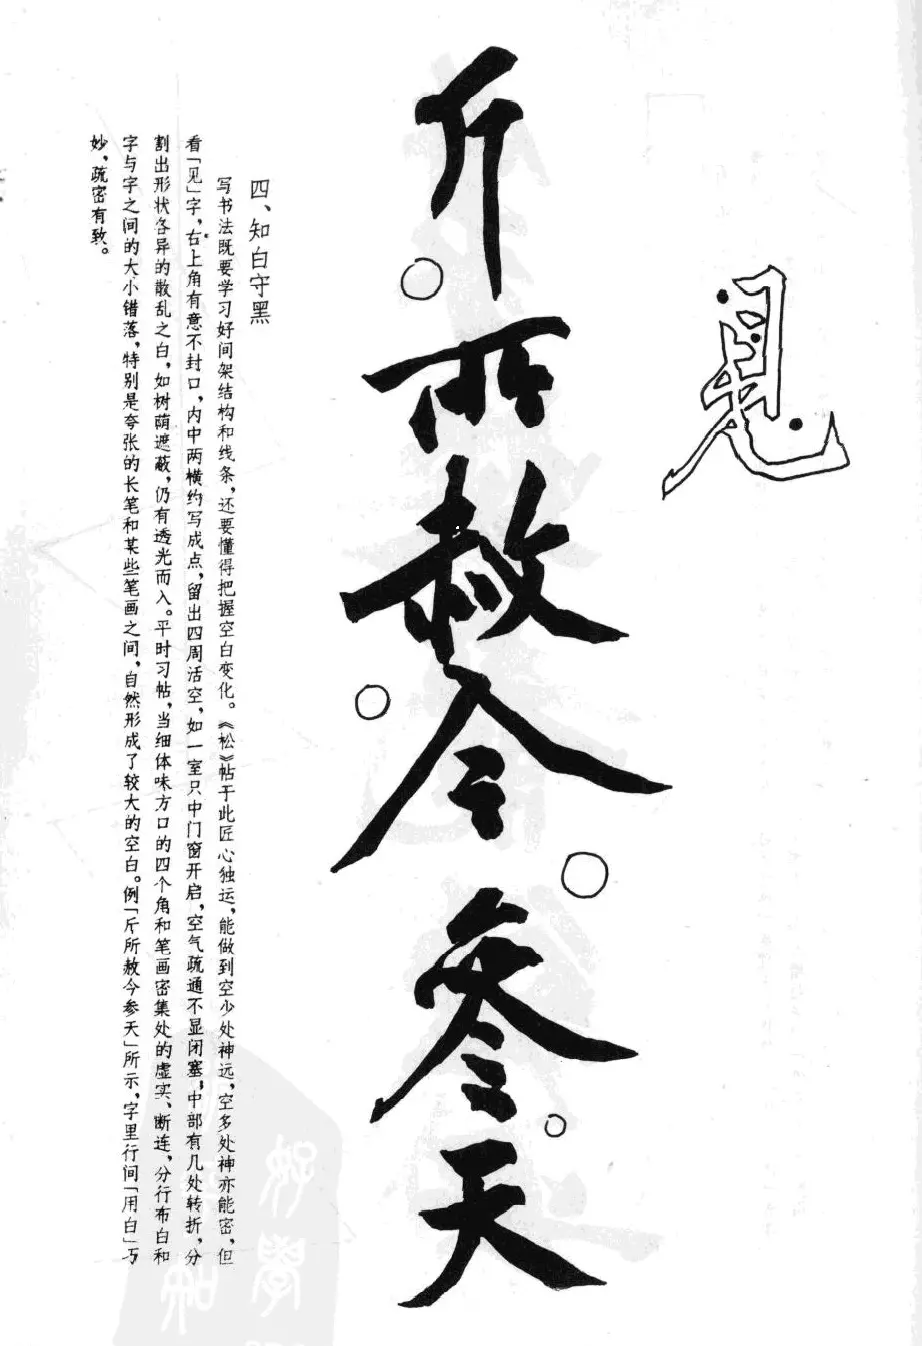 見
斤所赦今参天
四、知白守黑
写书法既要学习好间架结构和线条，还要懂得把握空白变化。《松》帖于此匠心独运，能做到空少处神远，空多处神亦能密，但
看「见」字，右上角有意不封口，内中两横约写成点，留出四周活空，如一室只中门窗开启，空气疏通不显闭塞；中部有几处转折，分
割出形状各异的散乱之白，如树荫遮蔽，仍有透光而入。平时习帖，当细体味方口的四个角和笔画密集处的虚实、断连，分行布白和
字与字之间的大小错落，特别是夸张的长笔和某些笔画之间，自然形成了较大的空白。例「斤所赦今参天」所示，字里行间「用白」巧
妙，疏密有致。
好學